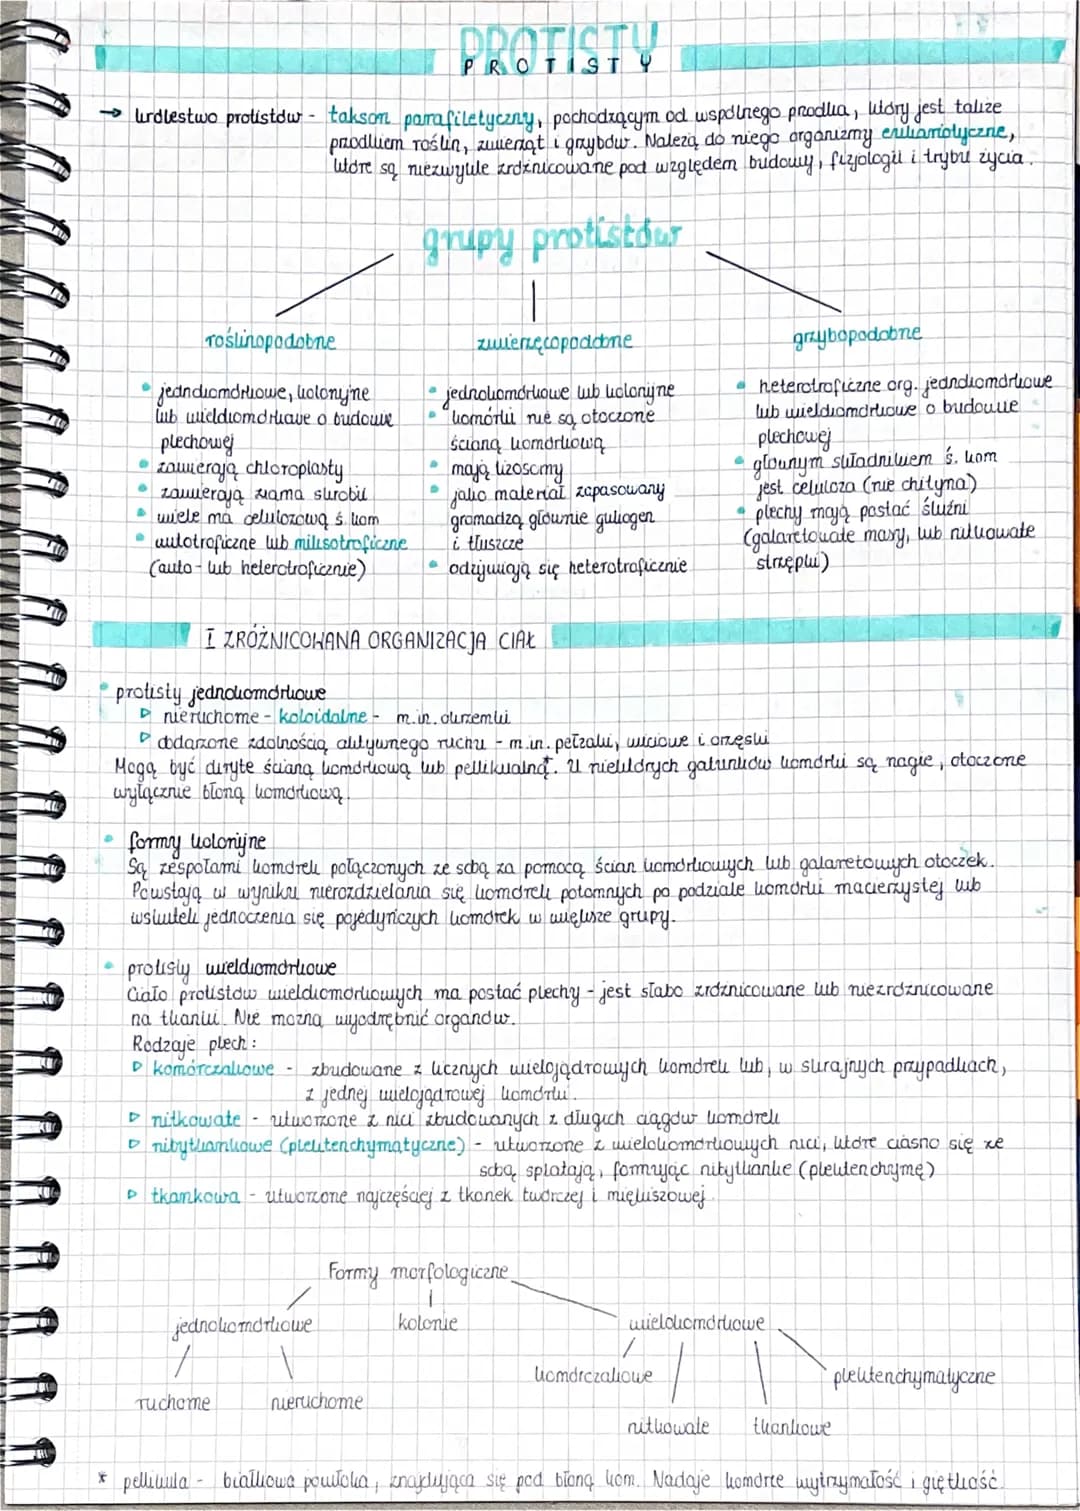 PROTISTY
PROTISTY
→ królestwo protistów - takson parafiletyczny, pochodzącym od wspólnego przodka, który jest także
przodkiem roślin, zwierząt i grzybów. Należą do niego organizmy eukariotyczne,
które są niezwykle zróżnicowane pod względem budowy, fizjologii i trybu życia.
grupy protistów
roślinopodobne
zwierzęcopodobne
grzybopodobne
• jednokomórkowe, kolonijne
lub wielokomórkowe o budowie
plechowej
• zawierają chloroplasty
• zawierają ziarna skrobii
• wiele ma celulozową ś. kom
• autotroficzne lub miksotroficzne
(auto- lub heterotroficznie)
• jednokomórkowe lub kolonijne
• komórki nie są otoczone
ścianą komórkową
• mają lizosomy
• jako materiał zapasowany
gromadzą głównie glikogen
i tłuszcze
• odżywiają się heterotroficznie
• heterotroficzne org. jednokomórkowe
lub wielokomórkowe o budowie
plechowej
• głównym składnikiem ś. kom
jest celuloza (nie chityna)
• plechy mają postać śluźni
(galaretowate masy, lub nitkowate
strzępki)
I ZRÓŻNICOWANA ORGANIZACJA CIAŁ
• protisty jednokomórkowe
▷ nieruchome - koloidalne - m.in. okrzemki
▷ obdarzone zdolnością aktywnego ruchu - m.in. pełzaki, wiciowe i orzęski
Mogą być okryte ścianą komórkową lub pellikualną*. U niektórych gatunków komórki są nagie, otoczone
wyłącznie błoną komórkową.
• formy kolonijne
Są zespołami komórek połączonych ze sobą za pomocą ścian komórkowych lub galaretowych otoczek.
Powstają w wyniku nierozdzielania się komórek potomnych po podziale komórki macierzystej lub
wskutek jednoczenia się pojedyńczych komórek w większe grupy.
• protisty wielokomórkowe
Ciało protistów wielokomórkowych ma postać plechy - jest słabo zróżnicowane lub niezróżnicowane
na tkanki. Nie można wyodrębnić organów.
Rodzaje plech:
▷ komórczakowe - zbudowane z licznych wielojądrowych komórek lub, w skrajnych przypadkach,
z jednej wielojądrowej komórki.
▷ nitkowate - utworzone z nici zbudowanych z długich ciągów komórek
▷ nibytkankowe (plektenchymatyczne) - utworzone z wielokomórkowych nici, które ciasno się ze
sobą splatają, formując nibytkankę (plektenchymę)
▷ tkankowa - utworzone najczęściej z tkanek twórczej i miękiszowej.
Formy morfologiczne
jednokomórkowe
kolonie
wielokomórkowe
ruchome
nieruchome
komórczakowe
nitkowate
tkankowe
plektenchymatyczne
* pellikula - białkowa powłoka, znajdująca się pod błoną kom. Nadaje komórce wytrzymałość i giętkość.